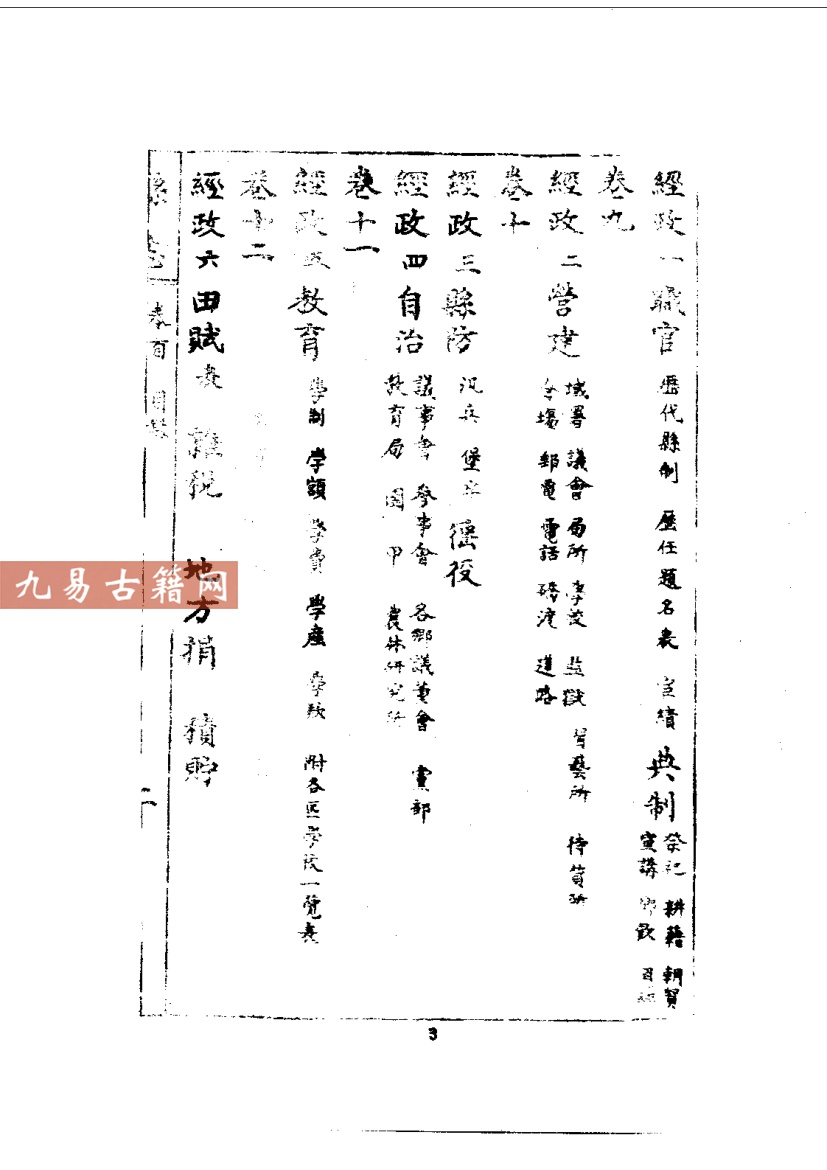 經政一職官 歷代縣制 歷任題名表 宦績 典制 祭祀 耕藉 朝賀 宣講 鄉飲
卷九
經政二營建 城署 議會 局所 學校 監獄 習藝所 待質所 倉場 郵電 電話 橋渡 道路
卷十
經政三縣防 汛兵 堡卒 徭役
經政四自治 議事會 參事會 各鄉議董會 黨部 教育局 團甲 農林研究所
卷十一
經政五教育 學制 學額 學費 學產 學款 附各區學校一覽表
卷十二
經政六田賦表 雜稅 地方捐 積貯
縣志 卷首 目錄 二
九易古籍网
3